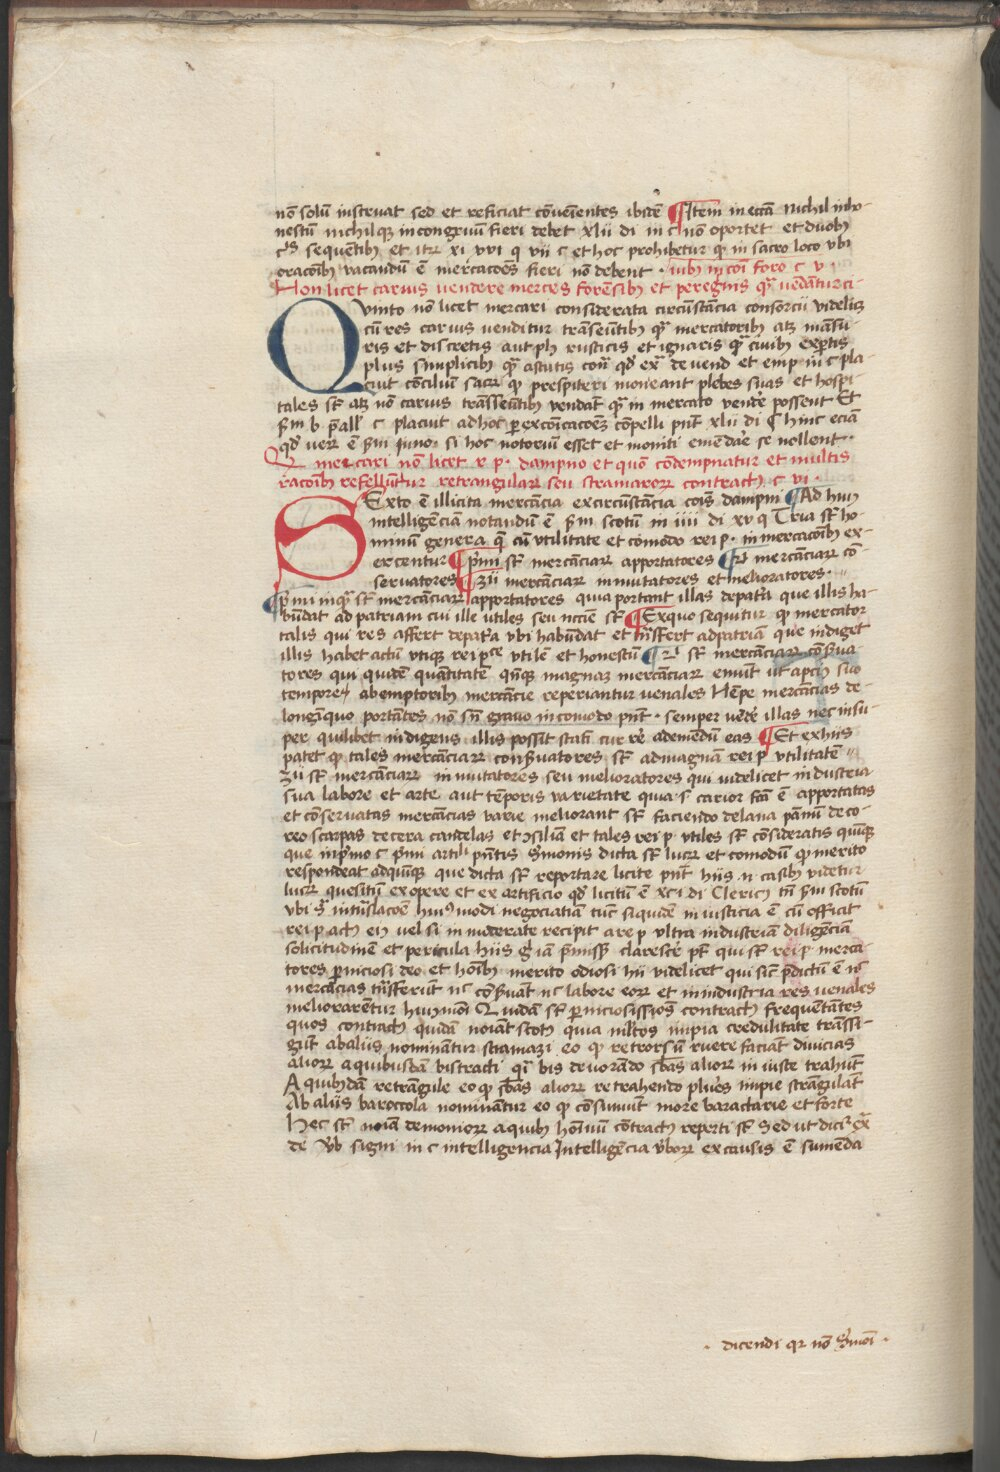 nō solū instruat sed et reficiat cōuenientes ibidē ¶ Item in eccā nichil inho-
nestū nichilqꝫ incongruum fieri debet xlii di in c nō oportet et duobꝫ
c̄ sequentibꝫ et itꝫ xi xvi q vii c et hoc prohibetur qꝫ in sacro loco vbi
oracōibꝫ vacandū ē mercacōes fieri nō debent · in cōi foro c v ·
Non licet carius vendere merces forensibꝫ et peregrinis qᷓ vēdāntur ci-
Quinto nō licet mercari considerata circūstācia consorcii videlicꝫ
cū res carius venditur trāseūtibꝫ qᷓ mercatoribꝫ atꝫ māsu-
ris et discretis aut plꝰ rusticis et ignaris qᷓ ciuibꝫ expertis
plus simplicibꝫ qᷓ astutis contᷓ qd exᷓ de vend et emp in c pla-
cuit conciliū sacꝝ qꝫ prespiteri moneant plebes suas et hospi-
tales st̄ atꝫ nō carius transeūtibꝫ vendāt qᷓ in mercato vendere possent Et
s̄m b c placuit ad hoc per excōicacōeꝫ cōpelli pn̄t xlii di c hinc eciā
qd veꝝ ē s̄m Inno · si hoc notoriū esset et moniti emēdāe se nollent ·
Q mercari nō licet r p · dampno et quō cōdempnatur et multis
racōibꝫ refellūntur retrangulaꝝ seu stramazoꝝ contractꝫ c vi ·
Sexto ē illicita mercācia ex circūstācia cōis dampni ¶ Ad huiꝰ
intelligēciā notandū ē s̄m scotū in iiii di xv q Tria st̄ ho-
minū genera q̄ cū vtilitate et cōmodo rei p · in mercacōibꝫ ex-
ercentur ¶ p̄mi st̄ mercāciaꝝ apportatores ¶ 2i mercāciaꝝ cō-
seruatores ¶ 3ii mercāciaꝝ inmutatores et melioratores ·
¶ p̄mi inqᷓ st̄ mercāciaꝝ apportatores quia portant illas de patᷓa que illis ha-
būdat ad patriam cui ille vtiles seu nccīe st̄ ¶ Ex quo sequitur qꝫ mercator
talis qui res affert de patᷓa vbi habūdat et trāsfert ad patriam que indiget
illis habet actū vtiqꝫ rei p̄ce vtilē et honestū ¶ 2i st̄ mercāciaꝝ cōserua-
tores qui quādē quantitatē qn̄qꝫ magnaꝫ mercāciaꝝ emūt vt apciꝰ suo
tempore ab emptoribꝫ mercācie reperiantur venales Nempe mercācias de
longinquo portātes nō sn̄ graui incōmodo pn̄t · semper vēdere illas nec insu-
per quilibet indigens illis possit statī currē ad emēdū eas ¶ Et ex hiis
patet qꝫ tales mercāciaꝝ conseruatores st̄ ad magnā rei p vtilitatē
3ii st̄ mercāciaꝝ inmutatores seu melioratores qui videlicet industria
sua labore et arte aut tēporis varietate quia s carior fcā ē apportatas
et cōseruatas mercācias varie meliorant st̄ faciendo de lana pānū de co-
reo scarpas de cera candelas et cōsilia et tales rei p · vtiles st̄ cōsideratis quīqꝫ
que in p̄mo c p̄mi articuli pn̄tis s̄monis dicta st̄ lucꝝ et cōmodū qꝫ merito
respondeat ad quīqꝫ que dicta st̄ reportare licite pn̄t hiis n casibꝫ videtur
lucꝝ quesitū ex opere et ex artificio qd licitū ē xci di Clericꝰ tn̄ s̄m scotū
vbi sᷓ in trāslacōe huiꝰmodi negociatiā tūc siquidē iniusticia ē cū officit
rei p actꝰ eiꝰ vel si inmoderate recipit a re p vltra industriam diligēciā
solicitudinē et pericula hiis gͥ iā p̄missꝫ clarescē pt̄ qui st̄ rei p · merca-
tores pniciosi deo et hoīibꝫ merito odiosi hii videlicet qui sic p̄dictū ē nc
mercācias trāsferūt nc cōseruāt nc labore eoꝝ et in industria res venales
meliorarētur huiꝰmōi Quidā st̄ pniciosissiōs contractꝰ frequētātes
quos contractꝰ quidā noīant scotꝰ quia multos impia credulitate trāssi-
gūt ab aliis nominantur stramazi eo qꝫ retrorsū ruere faciāt diuicias
alioꝝ a quibusdā bistracti qᷓ bis deuorādo sb̄as alioꝝ iniuste trahūt
A quibꝫdā retrāgule eo qꝫ sb̄as alioꝝ retrahendo plures impie strāgulāt
Ab aliis baroccola nominātur eo qꝫ cōsumūt more baractarie et forte
Hec st̄ noīa demonioꝝ a quibꝫ hoīnū cōtractꝰ reperti st̄ Sed vt dicit ex
de v̄b signi in c intelligencia Intelligēcia v̄boꝝ ex causis ē sumēda
· dicendi qꝛ nō s̄moī ·